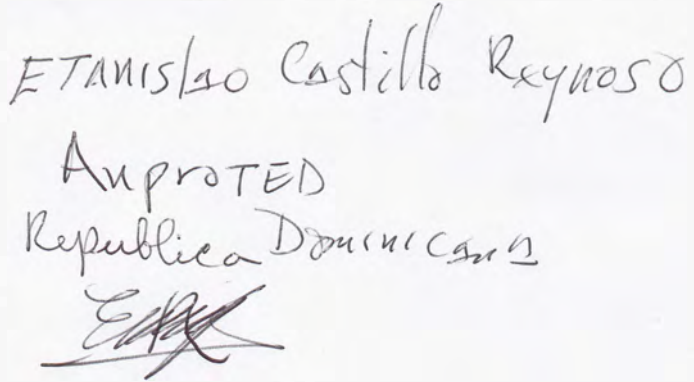 ETANISlao Castillo Reynoso
ANproTED
Republica Dominicana